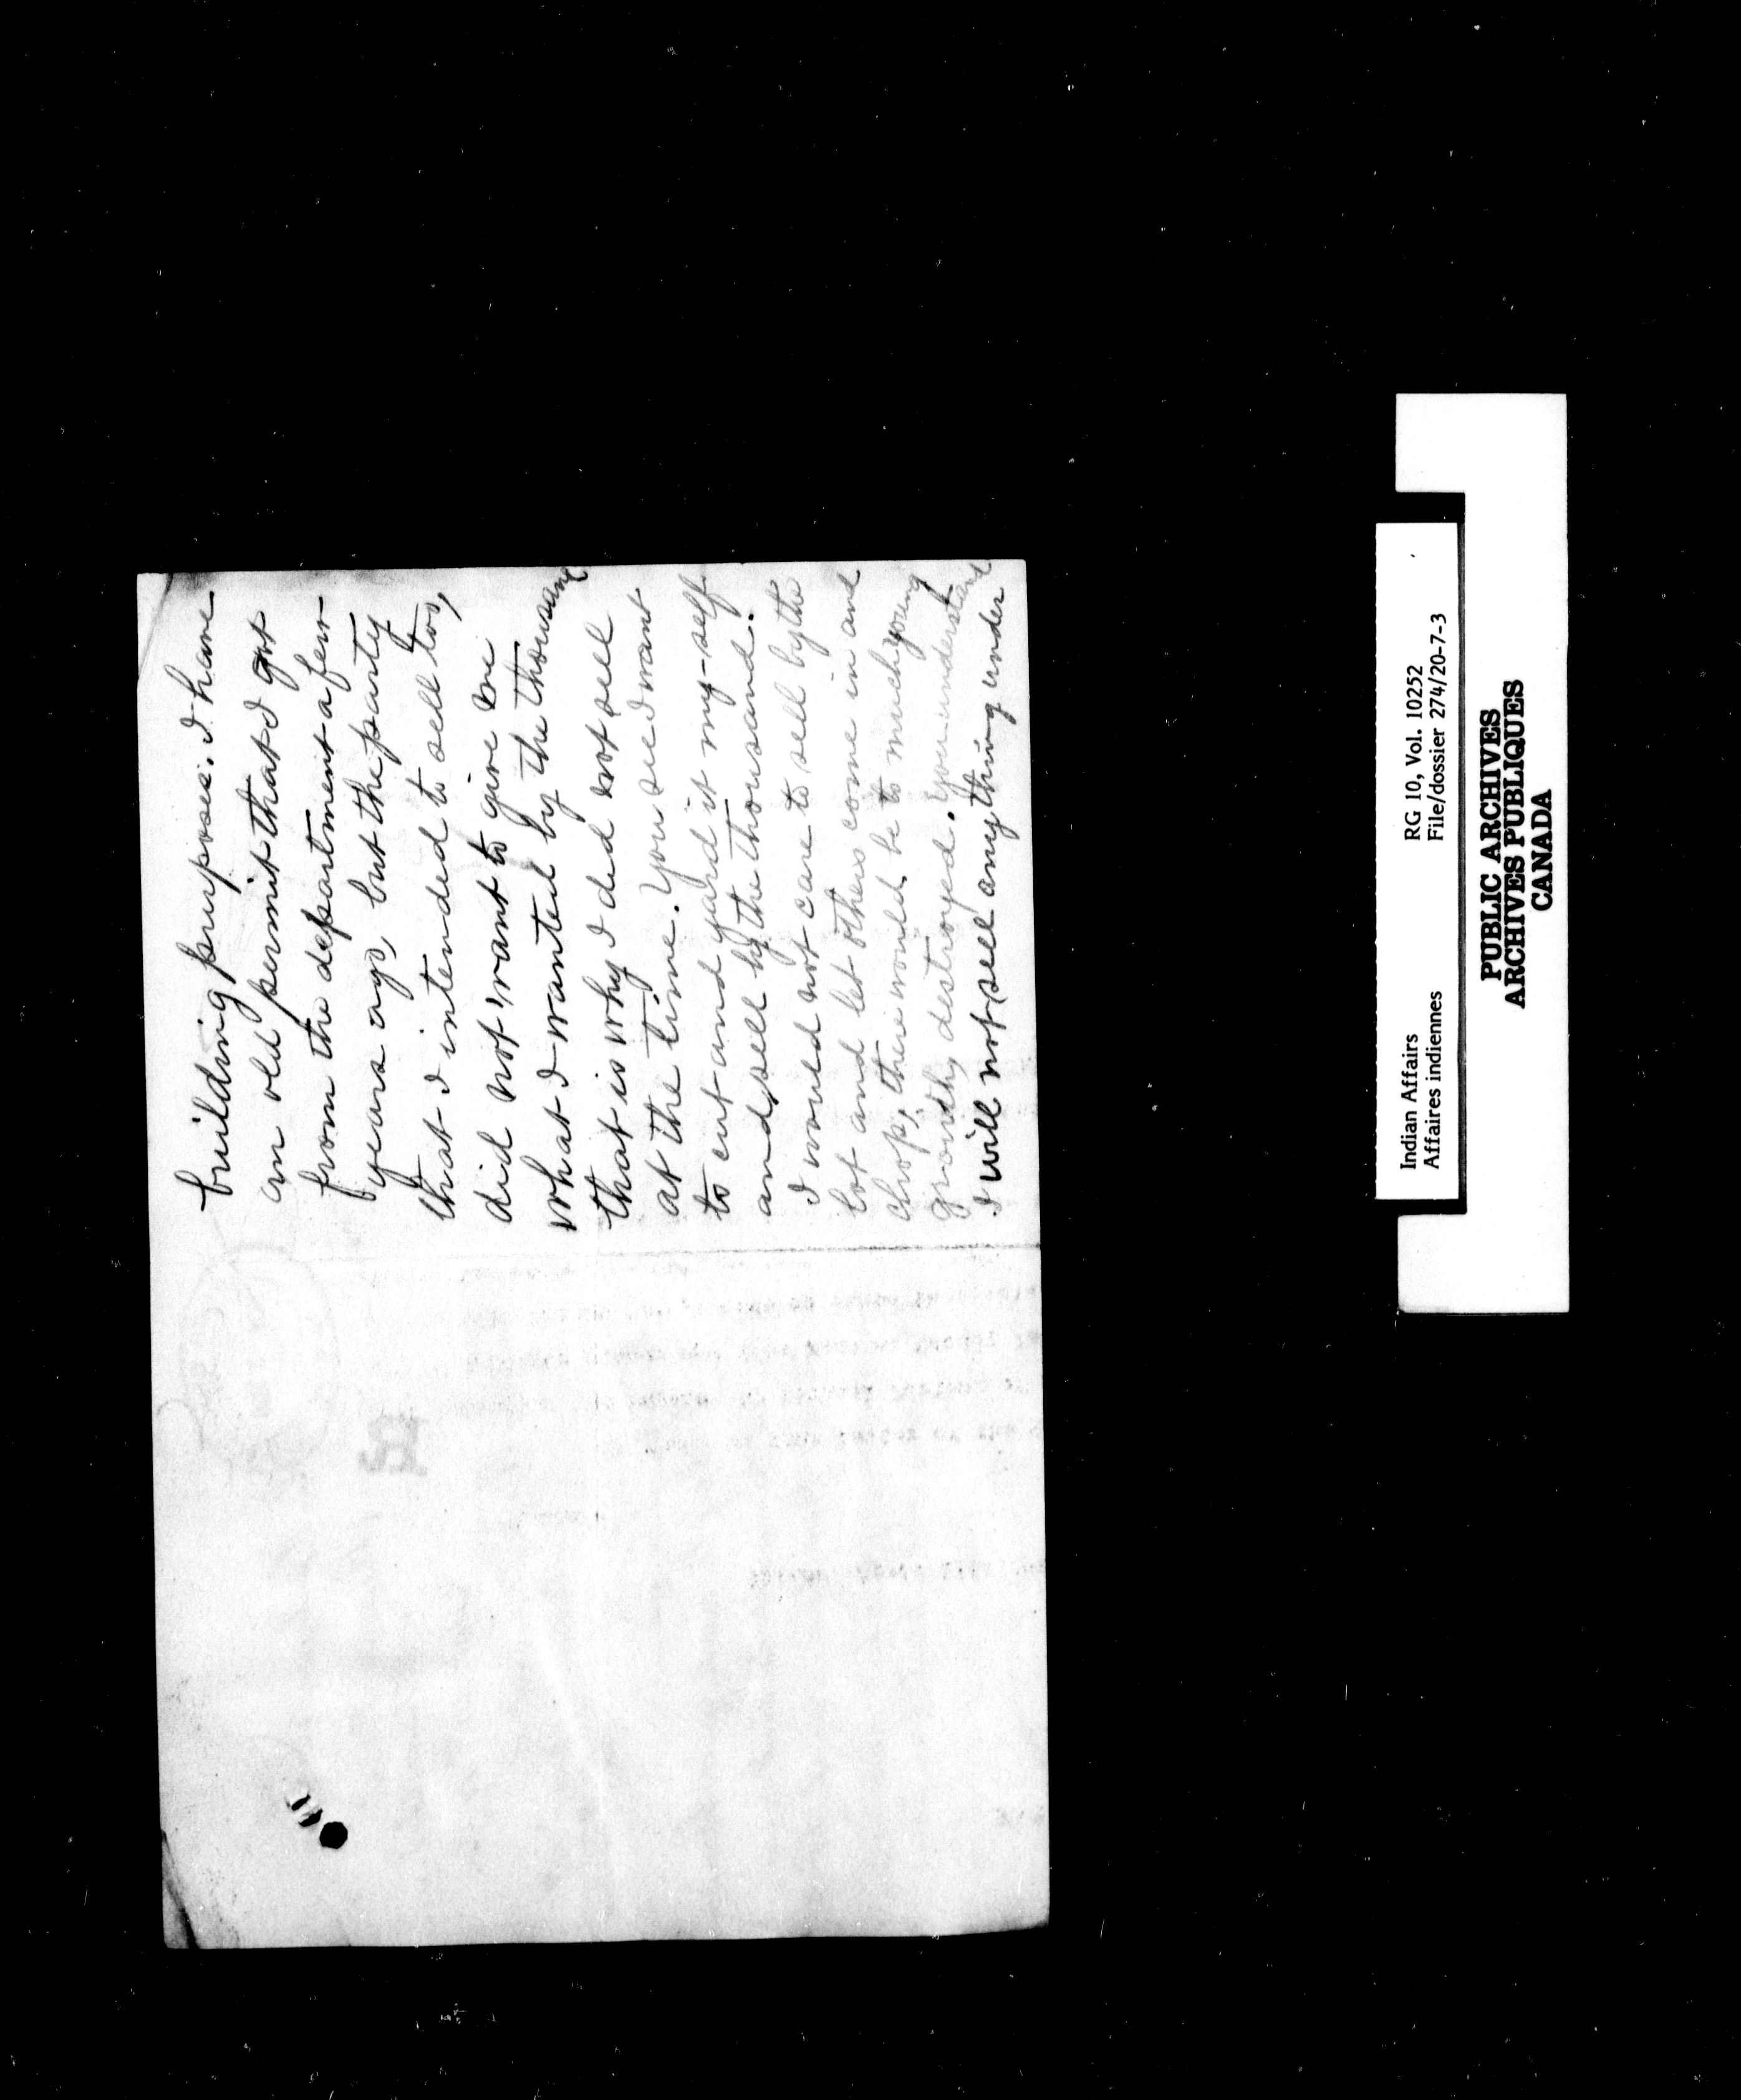 building purposes. I have
an old permit that I got
from the department a few
years ago, but the party
that I intended to sell too,
did not want to give me
what I wanted by the thousand
that is why I did not sell
at the time. You see I want
to cut and yard it my-self
and sell by the thousand.
I would not care to sell by the
lot and let others come in and
chop, there would be to much young
growth, destroyed. You understand
I will not sell any thing under
Indian Affairs RG 10, Vol. 10252
Affaires indiennes File/dossier 274/20-7-3
PUBLIC ARCHIVES
ARCHIVES PUBLIQUES
CANADA